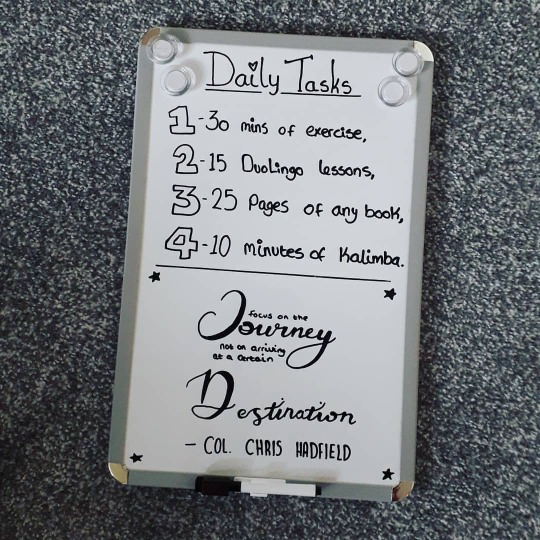 Daily Tasks
1-30 mins of exercise,
2-15 DuoLingo lessons,
3-25 Pages of any book,
4-10 minutes of Kalimba.
focus on the
Journey
not on arriving
at a certain
Destination
- COL. CHRIS HADFIELD